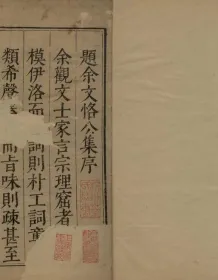 題余文恪公集序
余觀文士家言宗理窟者
模伊洛而 詞則村工詞章
類希聲 而旨味則疎甚至